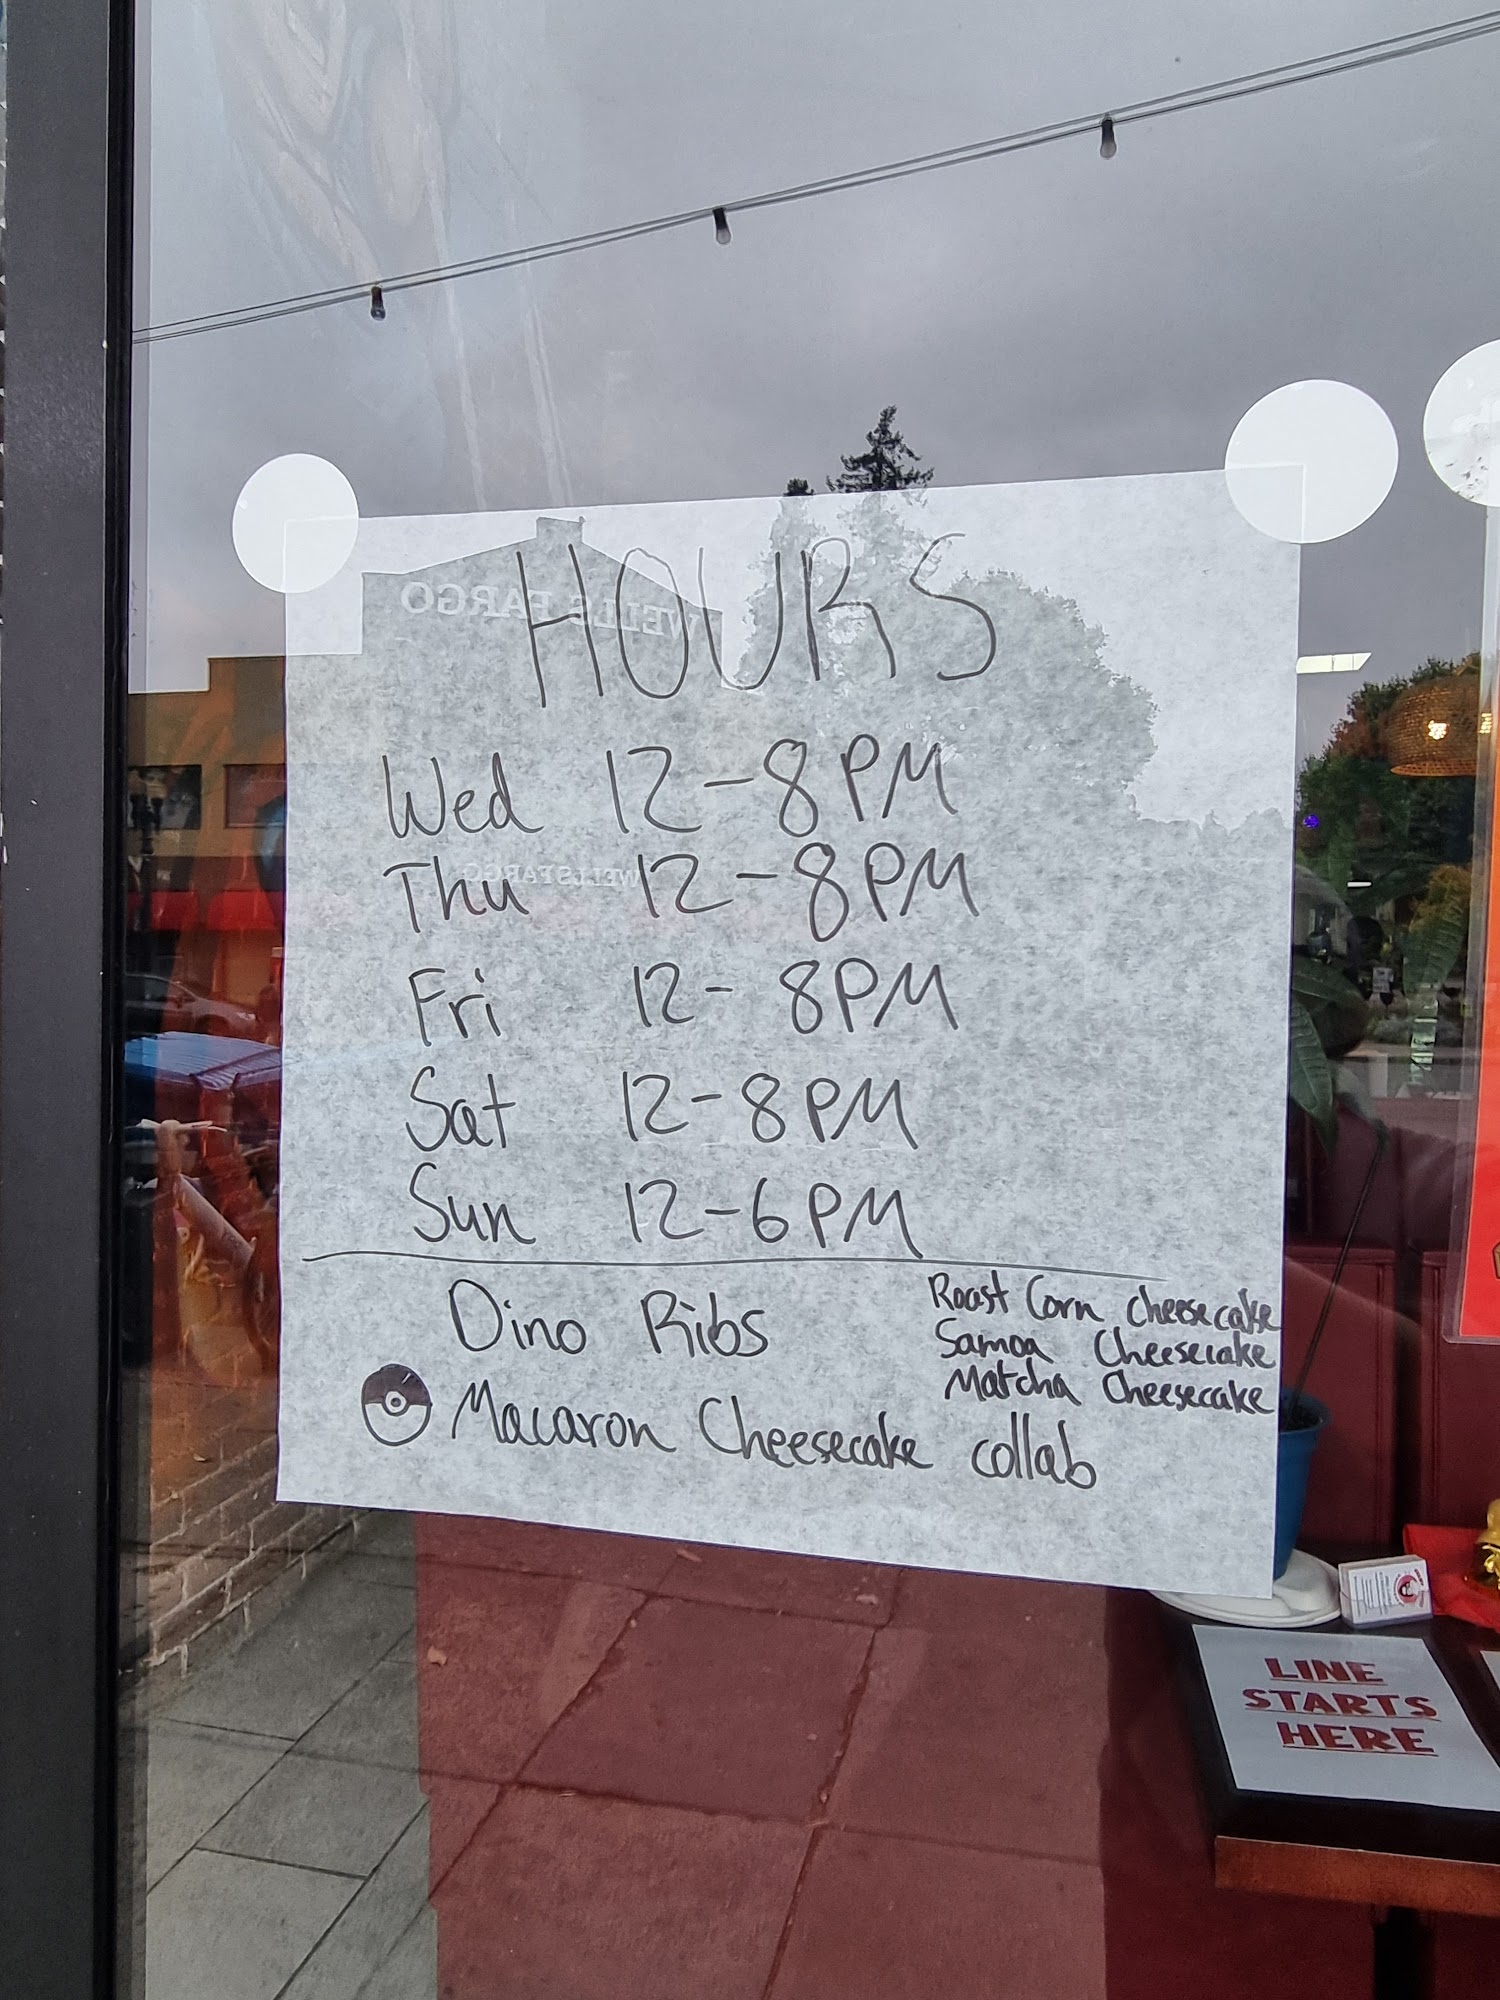 HOURS
Wed 12-8PM
Thu 12-8PM
Fri 12-8PM
Sat 12-8PM
Sun 12-6PM
Dino Ribs
Roast Corn Cheesecake
Samoa Cheesecake
Matcha Cheesecake
Macaron Cheesecake collab
WELLS FARGO
WELLS FARGO
LINE
STARTS
HERE